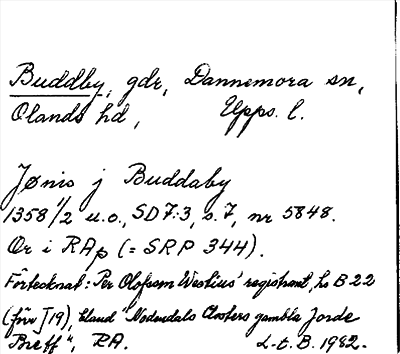 Buddby, gdr, Dannemora sn,
Olands hd, Upps. l.
Jønis j Buddaby
1358 1/2 u.o., SD 7:3, s. 7, nr 5848.
Or i RAp (= SRP 344).
Förtecknat: Per Olofsson Westius' registrant, hs B 22
(förv I 19), bland "Nodendals Closters gambla Jorde
Breff", RA. L-t. B. 1982.